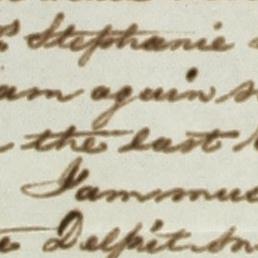 Stephanie
am again
the last
I am muc
Delpit